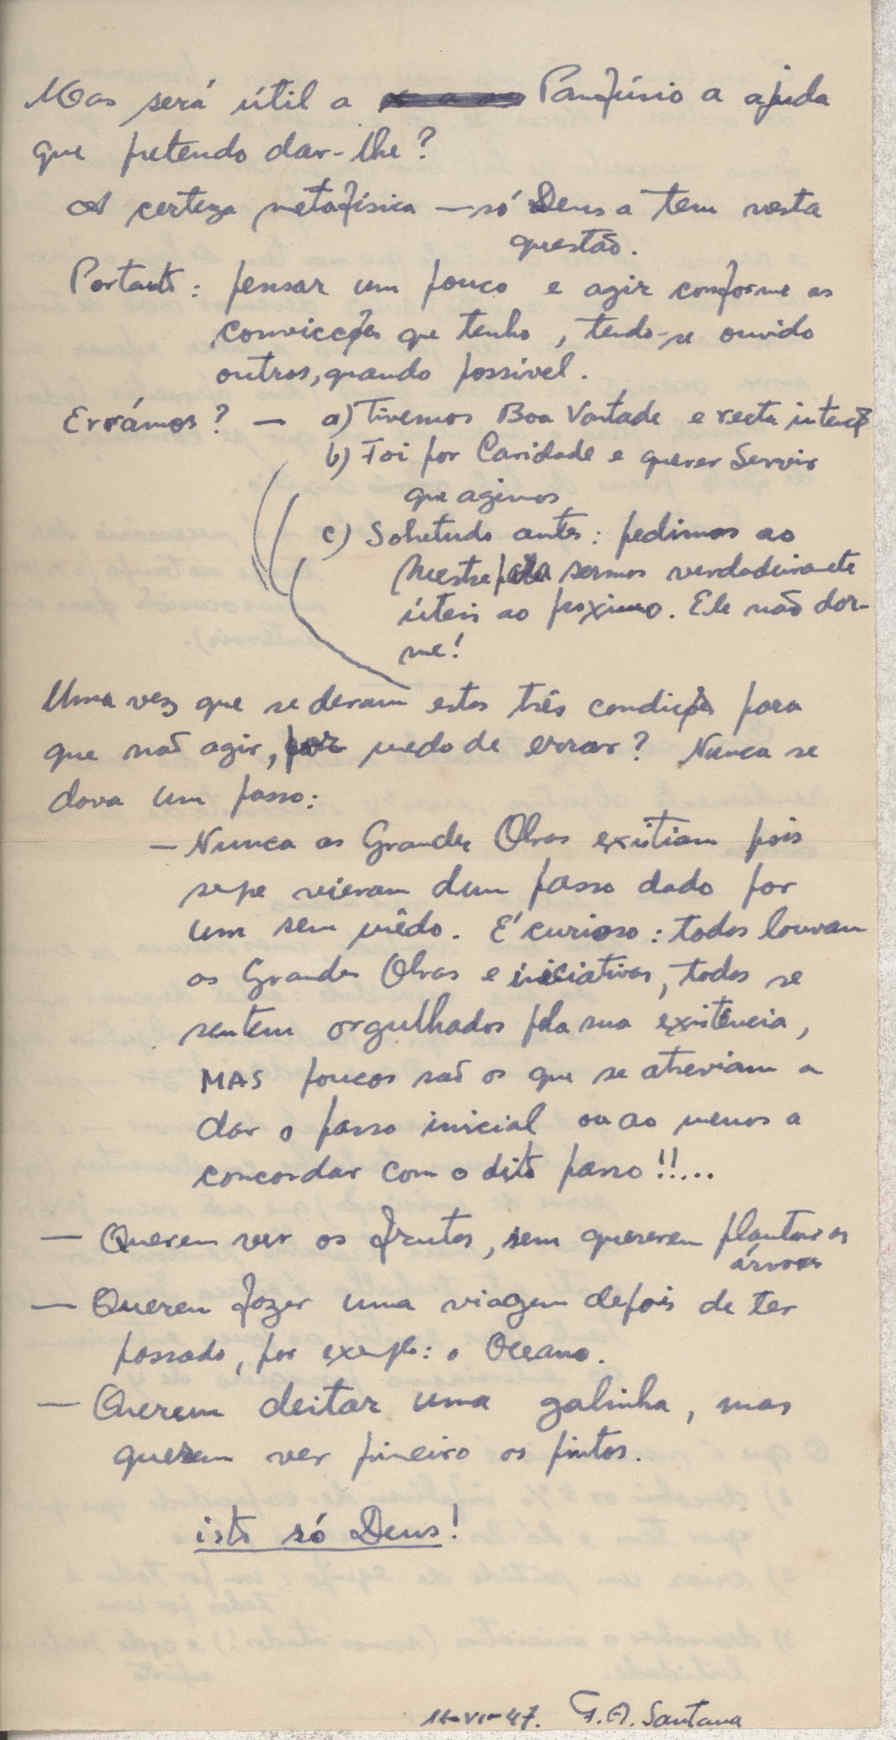 Mas será útil a Panfúsio a ajuda
que pretendo dar-lhe?
A certeza metafísica — só Deus a tem nesta
questão.
Portanto: pensar um pouco e agir conforme as
convicções que tenho, tendo-se ouvido
outros, quando possível.
Errámos? — a) Tivemos Boa Vontade e recta intenção
b) Foi por Caridade e querer Servir
que agimos
c) Sobretudo antes: pedimos ao
Mestre para sermos verdadeiramente
úteis ao proximo. Ele não dor-
me!
Uma vez que se deram estas três condições para
que não agir, por medo de errar? Nunca se
dava um passo:
— Nunca as Grandes Obras existiam pois
sempre vieram dum passo dado por
um sem mêdo. É curioso: todos louvam
as Grandes Obras e iniciativas, todos se
sentem orgulhados pela sua existência,
MAS poucos são os que se atreviam a
dar o passo inicial ou ao menos a
concordar com o dito passo!!...
— Querem ver os frutos, sem quererem plantar as
árvores
— Querem fazer uma viagem depois de ter
passado, por exemplo: o Oceano.
— Querem deitar uma galinha, mas
querem ver primeiro os pintos.
isto só Deus!
-VI-47. F. A. Santana